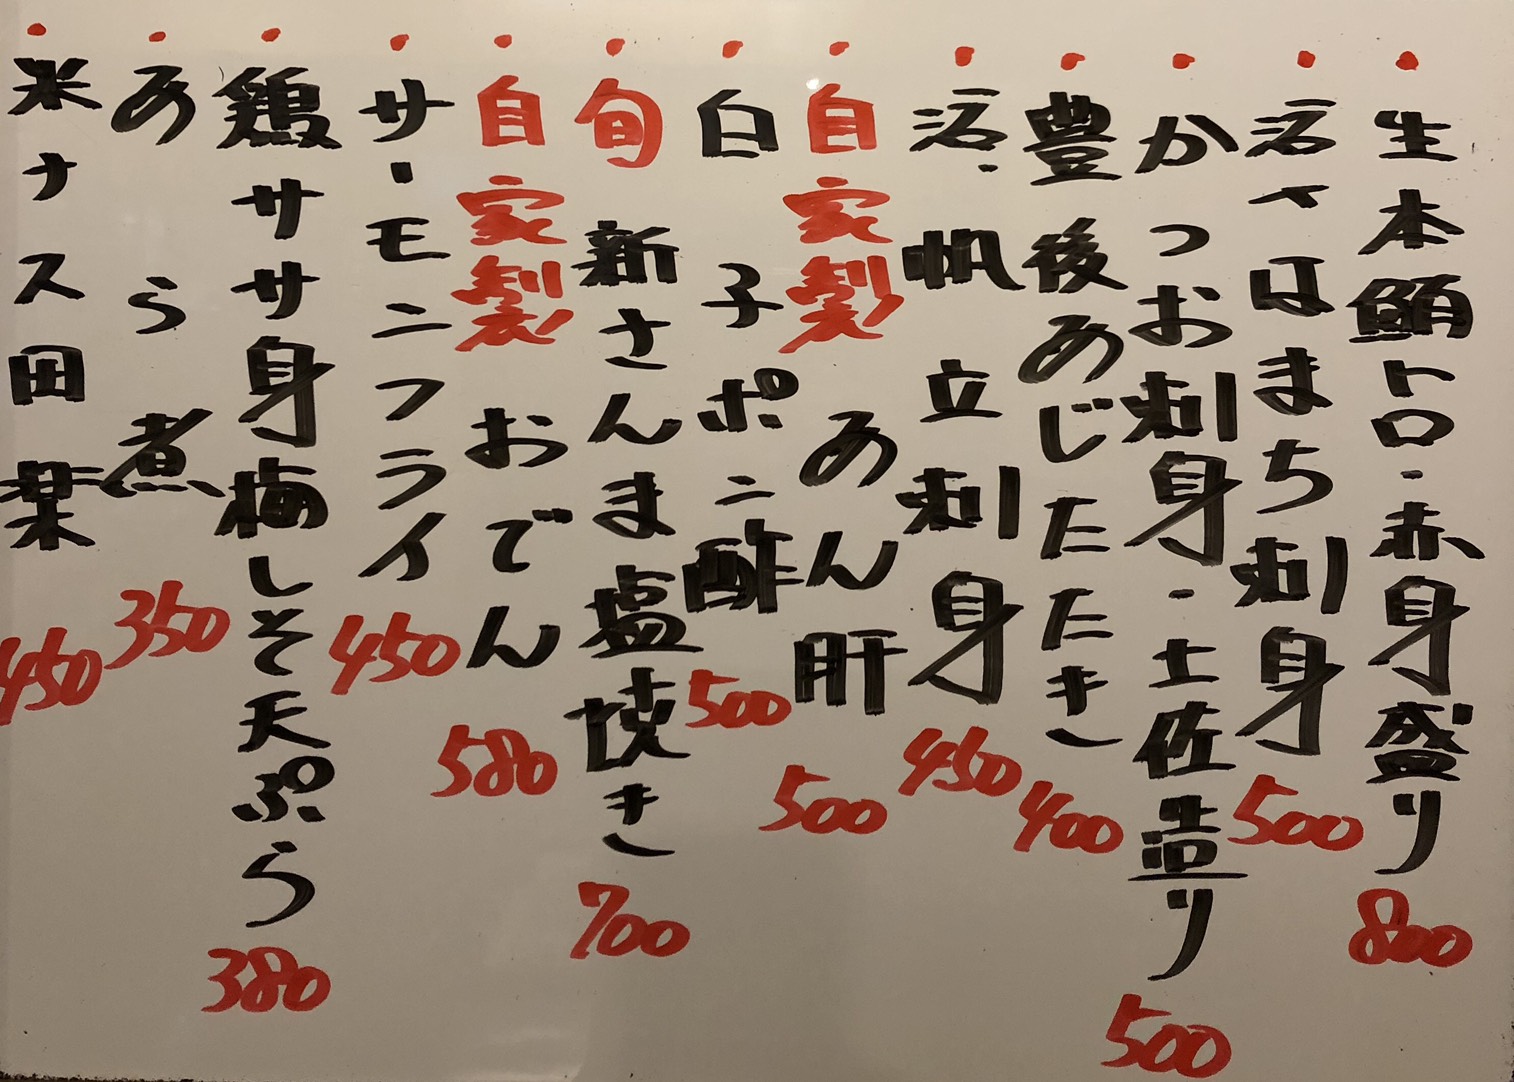 ・生本鮪トロ・赤身盛り 800
・活〆はまち刺身 500
・かつお刺身・土佐造り 500
・豊後あじたたき 400
・活帆立刺身 450
・自家製 あん肝 500
・白子ポン酢 500
・旬 新さんま塩焼き 700
・自家製 おでん 580
・サーモンフライ 450
・鶏ササ身梅しそ天ぷら 380
・あら煮 350
・米ナス田楽 450